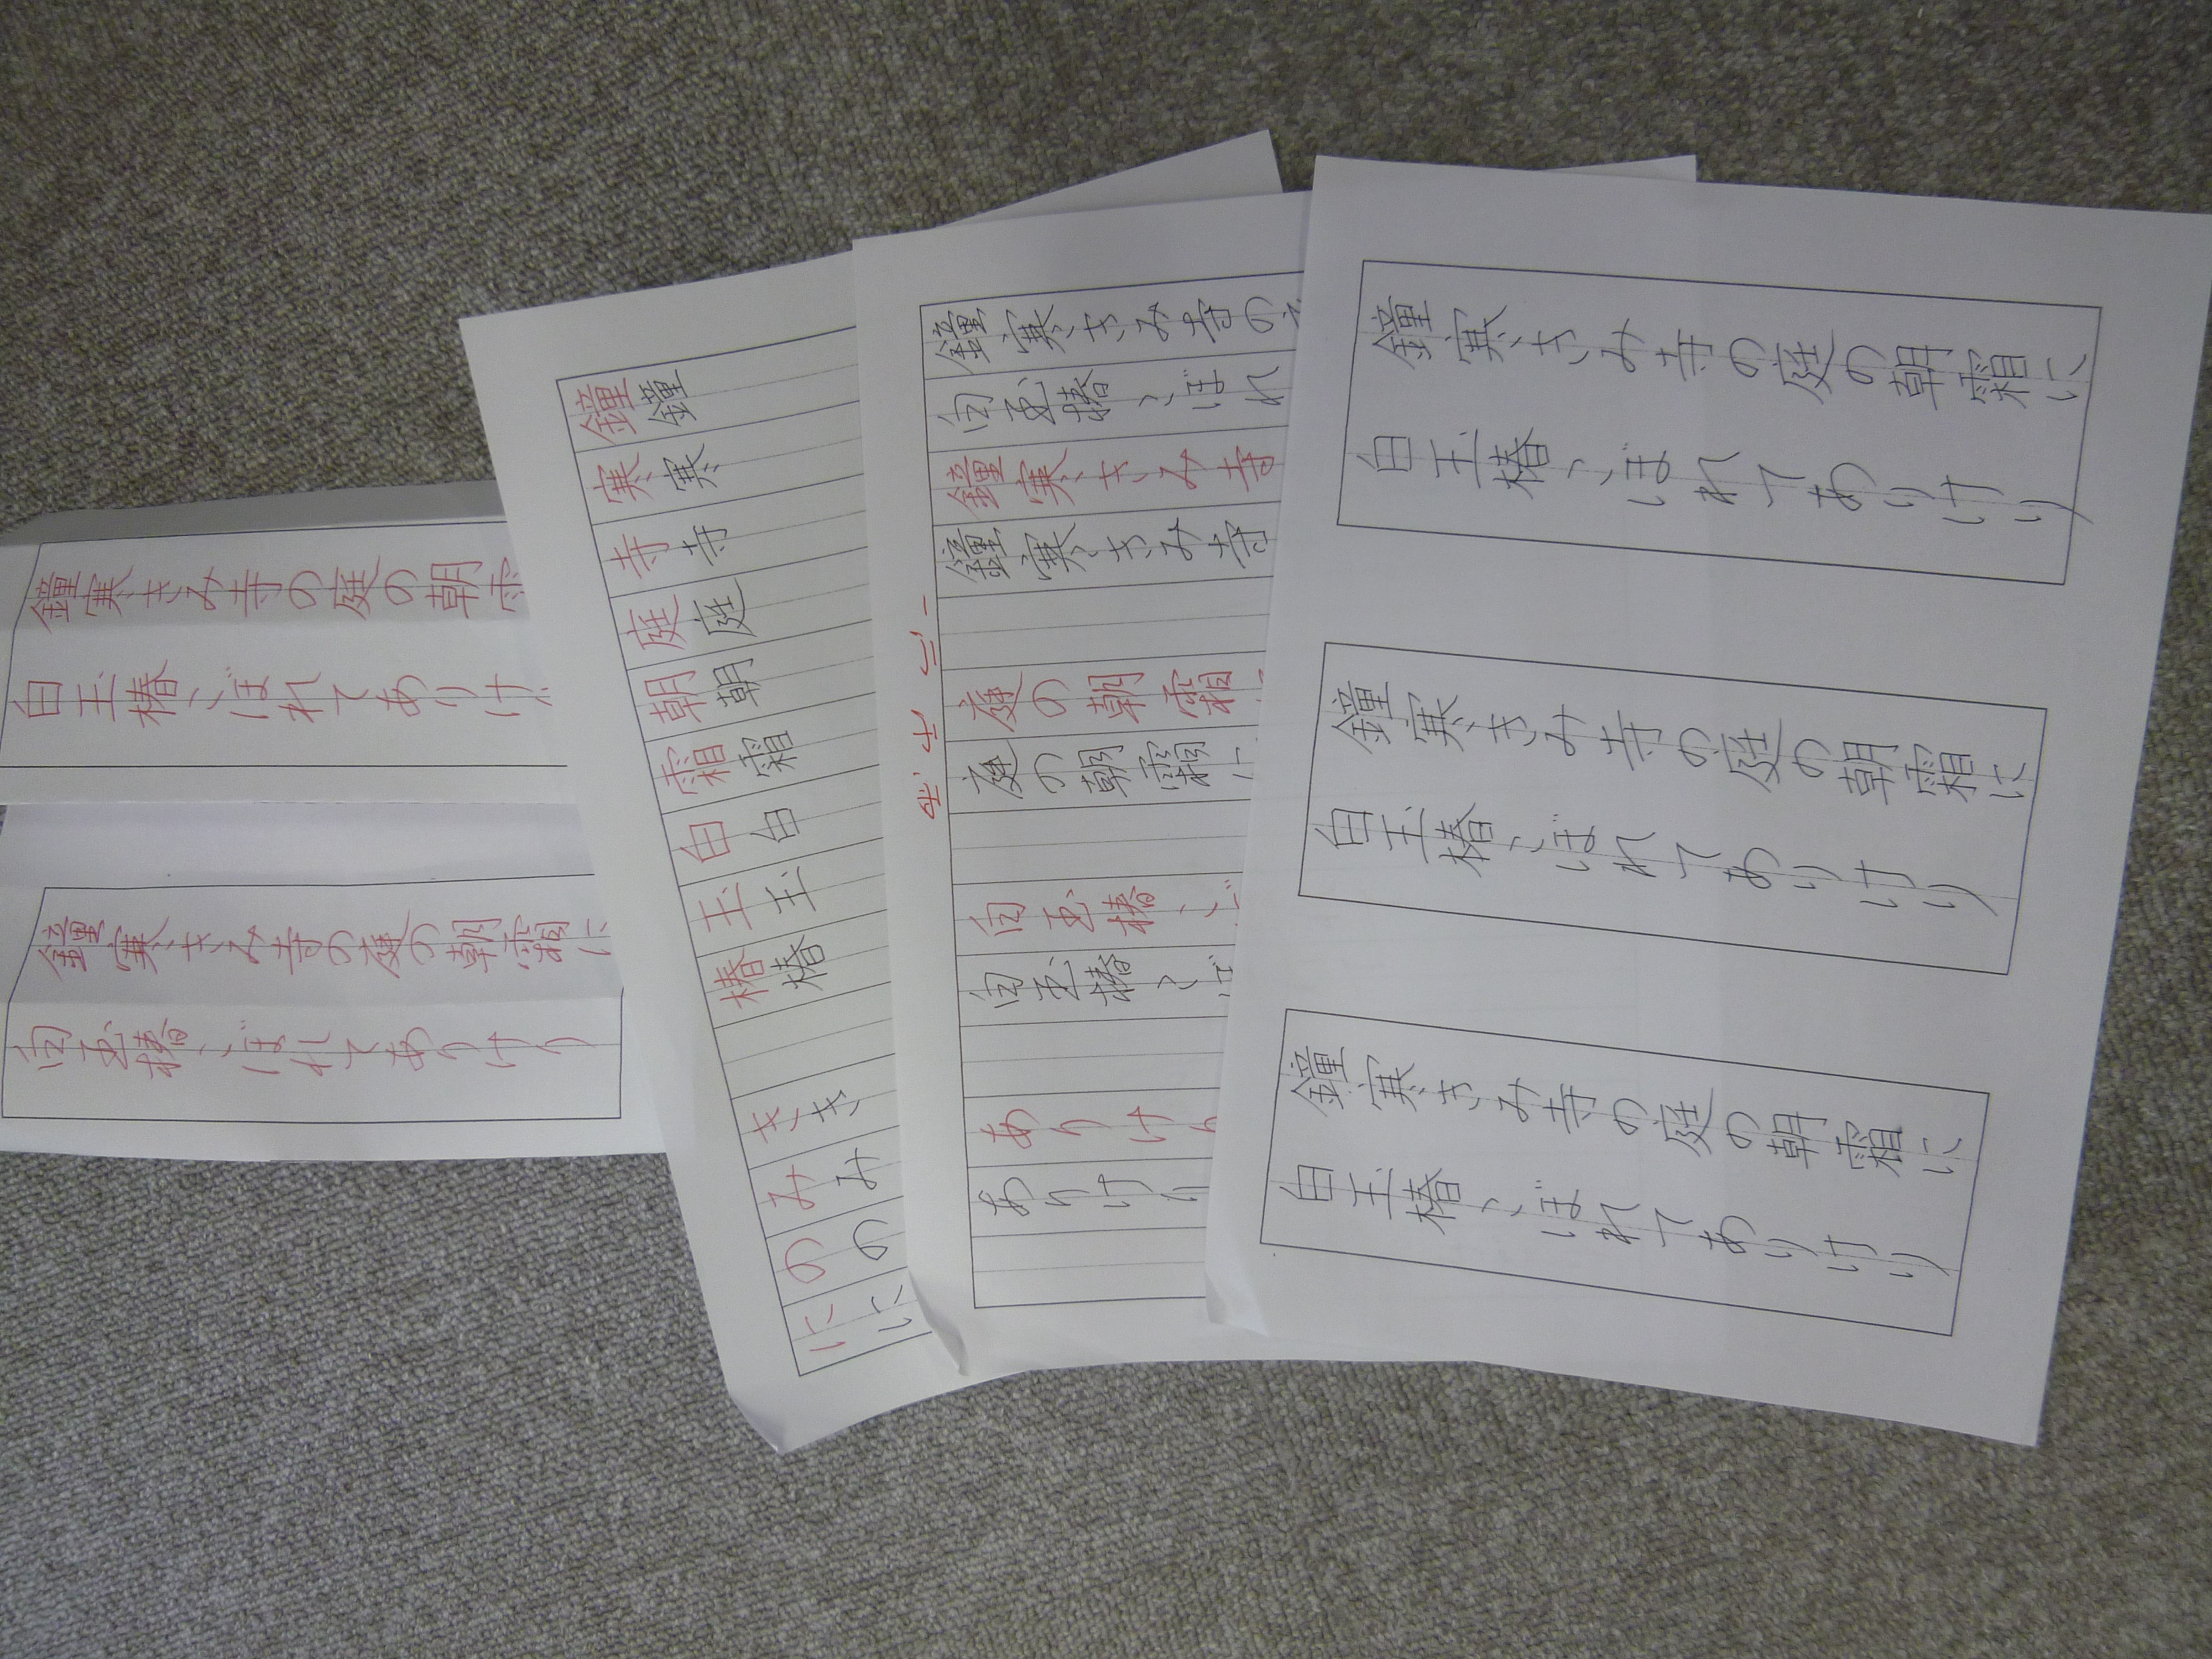 鐘寒きみ寺の庭の朝
白玉椿こぼれてありけ
鐘寒きみ寺の庭の朝霜に
白玉椿こぼれてありけり
鐘鐘
寒寒
寺寺
庭庭
朝朝
霜霜
白白
玉玉
椿椿
きき
みみ
のの
にに
鐘寒きみ寺の
白玉椿こぼれ
鐘寒きみ寺
鐘寒きみ寺
庭の朝霜
庭の朝霜に
白玉椿こ
白玉椿こぼ
ありけり
ありけり
鐘寒きみ寺の庭の朝霜に
白玉椿こぼれてありけり
鐘寒きみ寺の庭の朝霜に
白玉椿こぼれてありけり
鐘寒きみ寺の庭の朝霜に
白玉椿こぼれてありけり